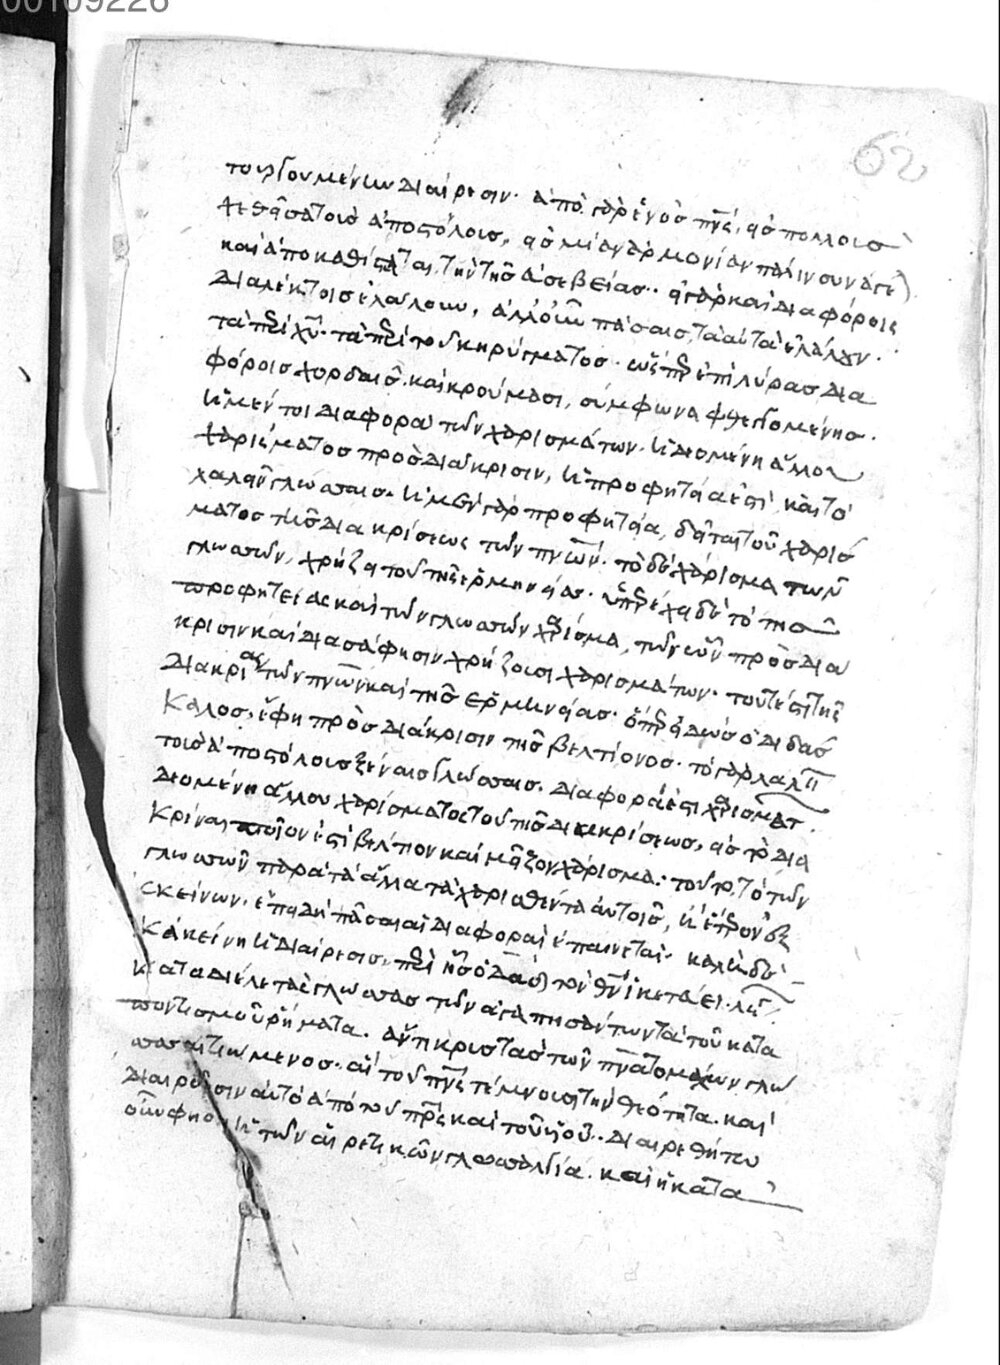 00109226
62
τουργουμένων διαίρεσιν· ἀπὸ γὰρ ἑνὸς πνς, εἰς πολλοὺς
τεθεῖσα τοὺς ἀποστόλους, εἰς μίαν ἁρμονίαν πάλιν συνάγει
καὶ ἀποκαθίσταται, τὴν τῆς εὐσεβείας·· εἰ γὰρ καὶ διαφόροις
διαλέκτοις ἐλάλουν, ἀλλ' οὖν πάσαις, τὰ αὐτὰ ἐλάλουν·
τὰ περὶ χυ· τὰ περὶ τοῦ κηρύγματος· ὥσπερ ἐπὶ λύρας δια
φόροις χορδαῖς καὶ κρούμασι, σύμφωνα φθεγγομένης·
ἡ μέντοι διαφορὰ τῶν χαρισμάτων· ἡ δεομένη ἄλλου
χαρίσματος πρὸς διάκρισιν, ἡ προφητεία ἐστὶ, καὶ τὸ
λαλεῖν γλώσσαις· ἡ μὲν γὰρ προφητεία, δεῖται τοῦ χαρίσ
ματος τῆς διακρίσεως τῶν πνων· τὸ δὲ χάρισμα τῶν
γλωσσῶν, χρήζει τοῦ τῆς ἑρμηνείας· ὑπερέχει δὲ τὸ τῆς
προφητείας καὶ τῶν γλωσσῶν χάρισμα, τῶν οὖν πρὸς διά
κρισιν καὶ διασάφησιν χρήζουσι χαρισμάτων· τουτέστι τῆς
διακρίσεως τῶν πνων καὶ τῆς ἑρμηνείας· ὅπερ εἰδὼς ὁ διδάσ
καλος, ἔφη πρὸς διάκρισιν τῆς βελτίονος· τὸ γὰρ λαλεῖν
τοὺς ἀποστόλους ξέναις γλώσσαις· διαφορά ἐστι χαρίσματος
δεομένη ἄλλου χαρίσματος τοῦ τῆς διακρίσεως, εἰς τὸ δια
κρῖναι ποῖον ἐστὶ βέλτιον καὶ μεῖζον χάρισμα· τοῦτο, τὸ τῶν
γλωσσῶν παρὰ τὰ ἄλλα τὰ χαρισθέντα αὐτοῖς, ἢ ἕτερον ἐξ
ἐκείνων· ἐπειδὴ πᾶσαι αἱ διαφοραὶ ἐπαινεταί· καλὴ δὲ
κἀκείνη ἡ διαίρεσις, περὶ ἧς ὁ δαδ τὸν θν ἱκετεύει λέγων·
κατα διελε τὰς γλώσσας τῶν ἀγαπησάντων τὰ τοῦ κατα
ποντισμοῦ ῥήματα· ἄντικρυς τὰς τῶν πνατομάχων γλώ
σσας αἰτιώμενος· αἳ τοῦ πνς τέμνουσι τὴν θεότητα· καὶ
διαιροῦσιν αὐτὸ ἀπὸ τοῦ πρς καὶ τοῦ υἱοῦ·· διαιρεθήτω
οὖν φησὶν ἡ τῶν αἱρετικῶν γλωσσαλγία· καὶ ἡ κατα